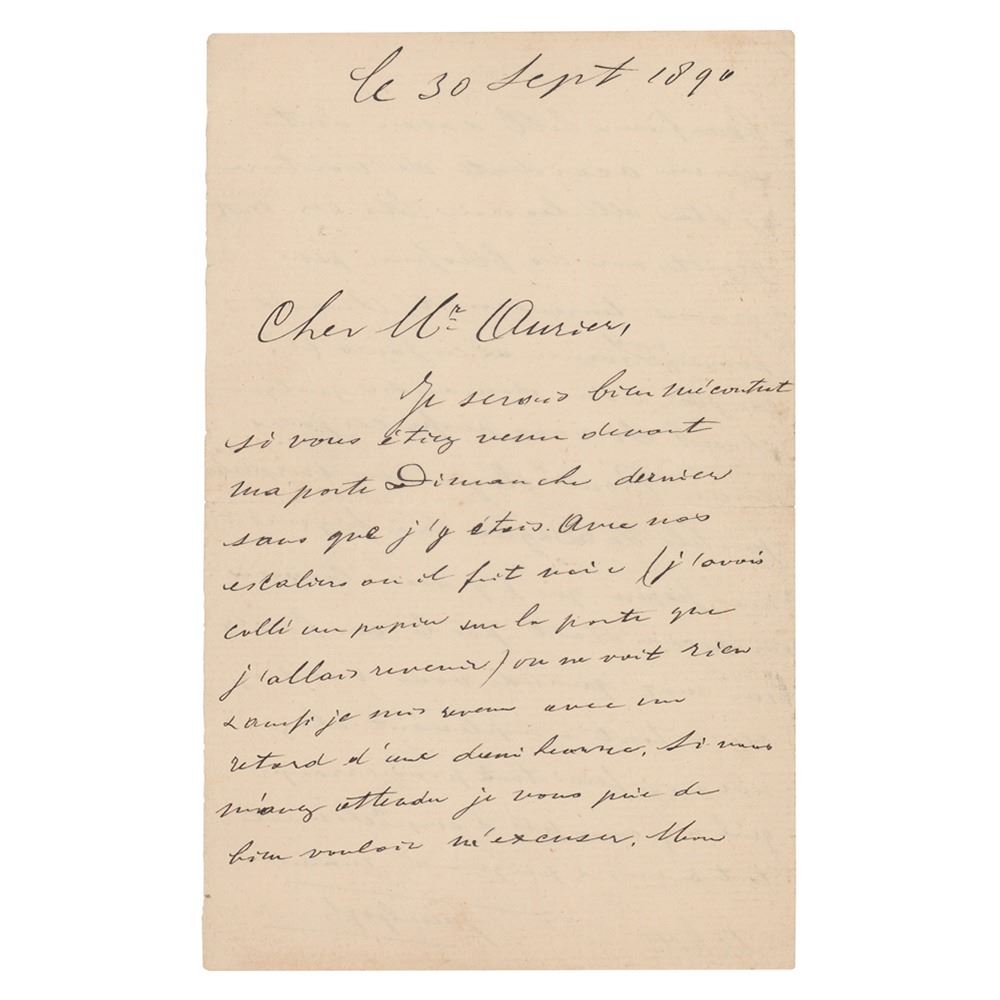 le 30 Sept 1890
Cher Mr Aurier,
Je serais bien mécontent
si vous étiez venu devant
ma porte Dimanche dernier
sans que j'y étais. Avec nos
escaliers ou il fait noir (j'avais
collé un papier sur la porte que
j'allais revenir) on ne voit rien
& aussi je suis revenu avec un
retard d'une demi heure. Si vous
m'avez attendu je vous prie de
bien vouloir m'excuser. Mon